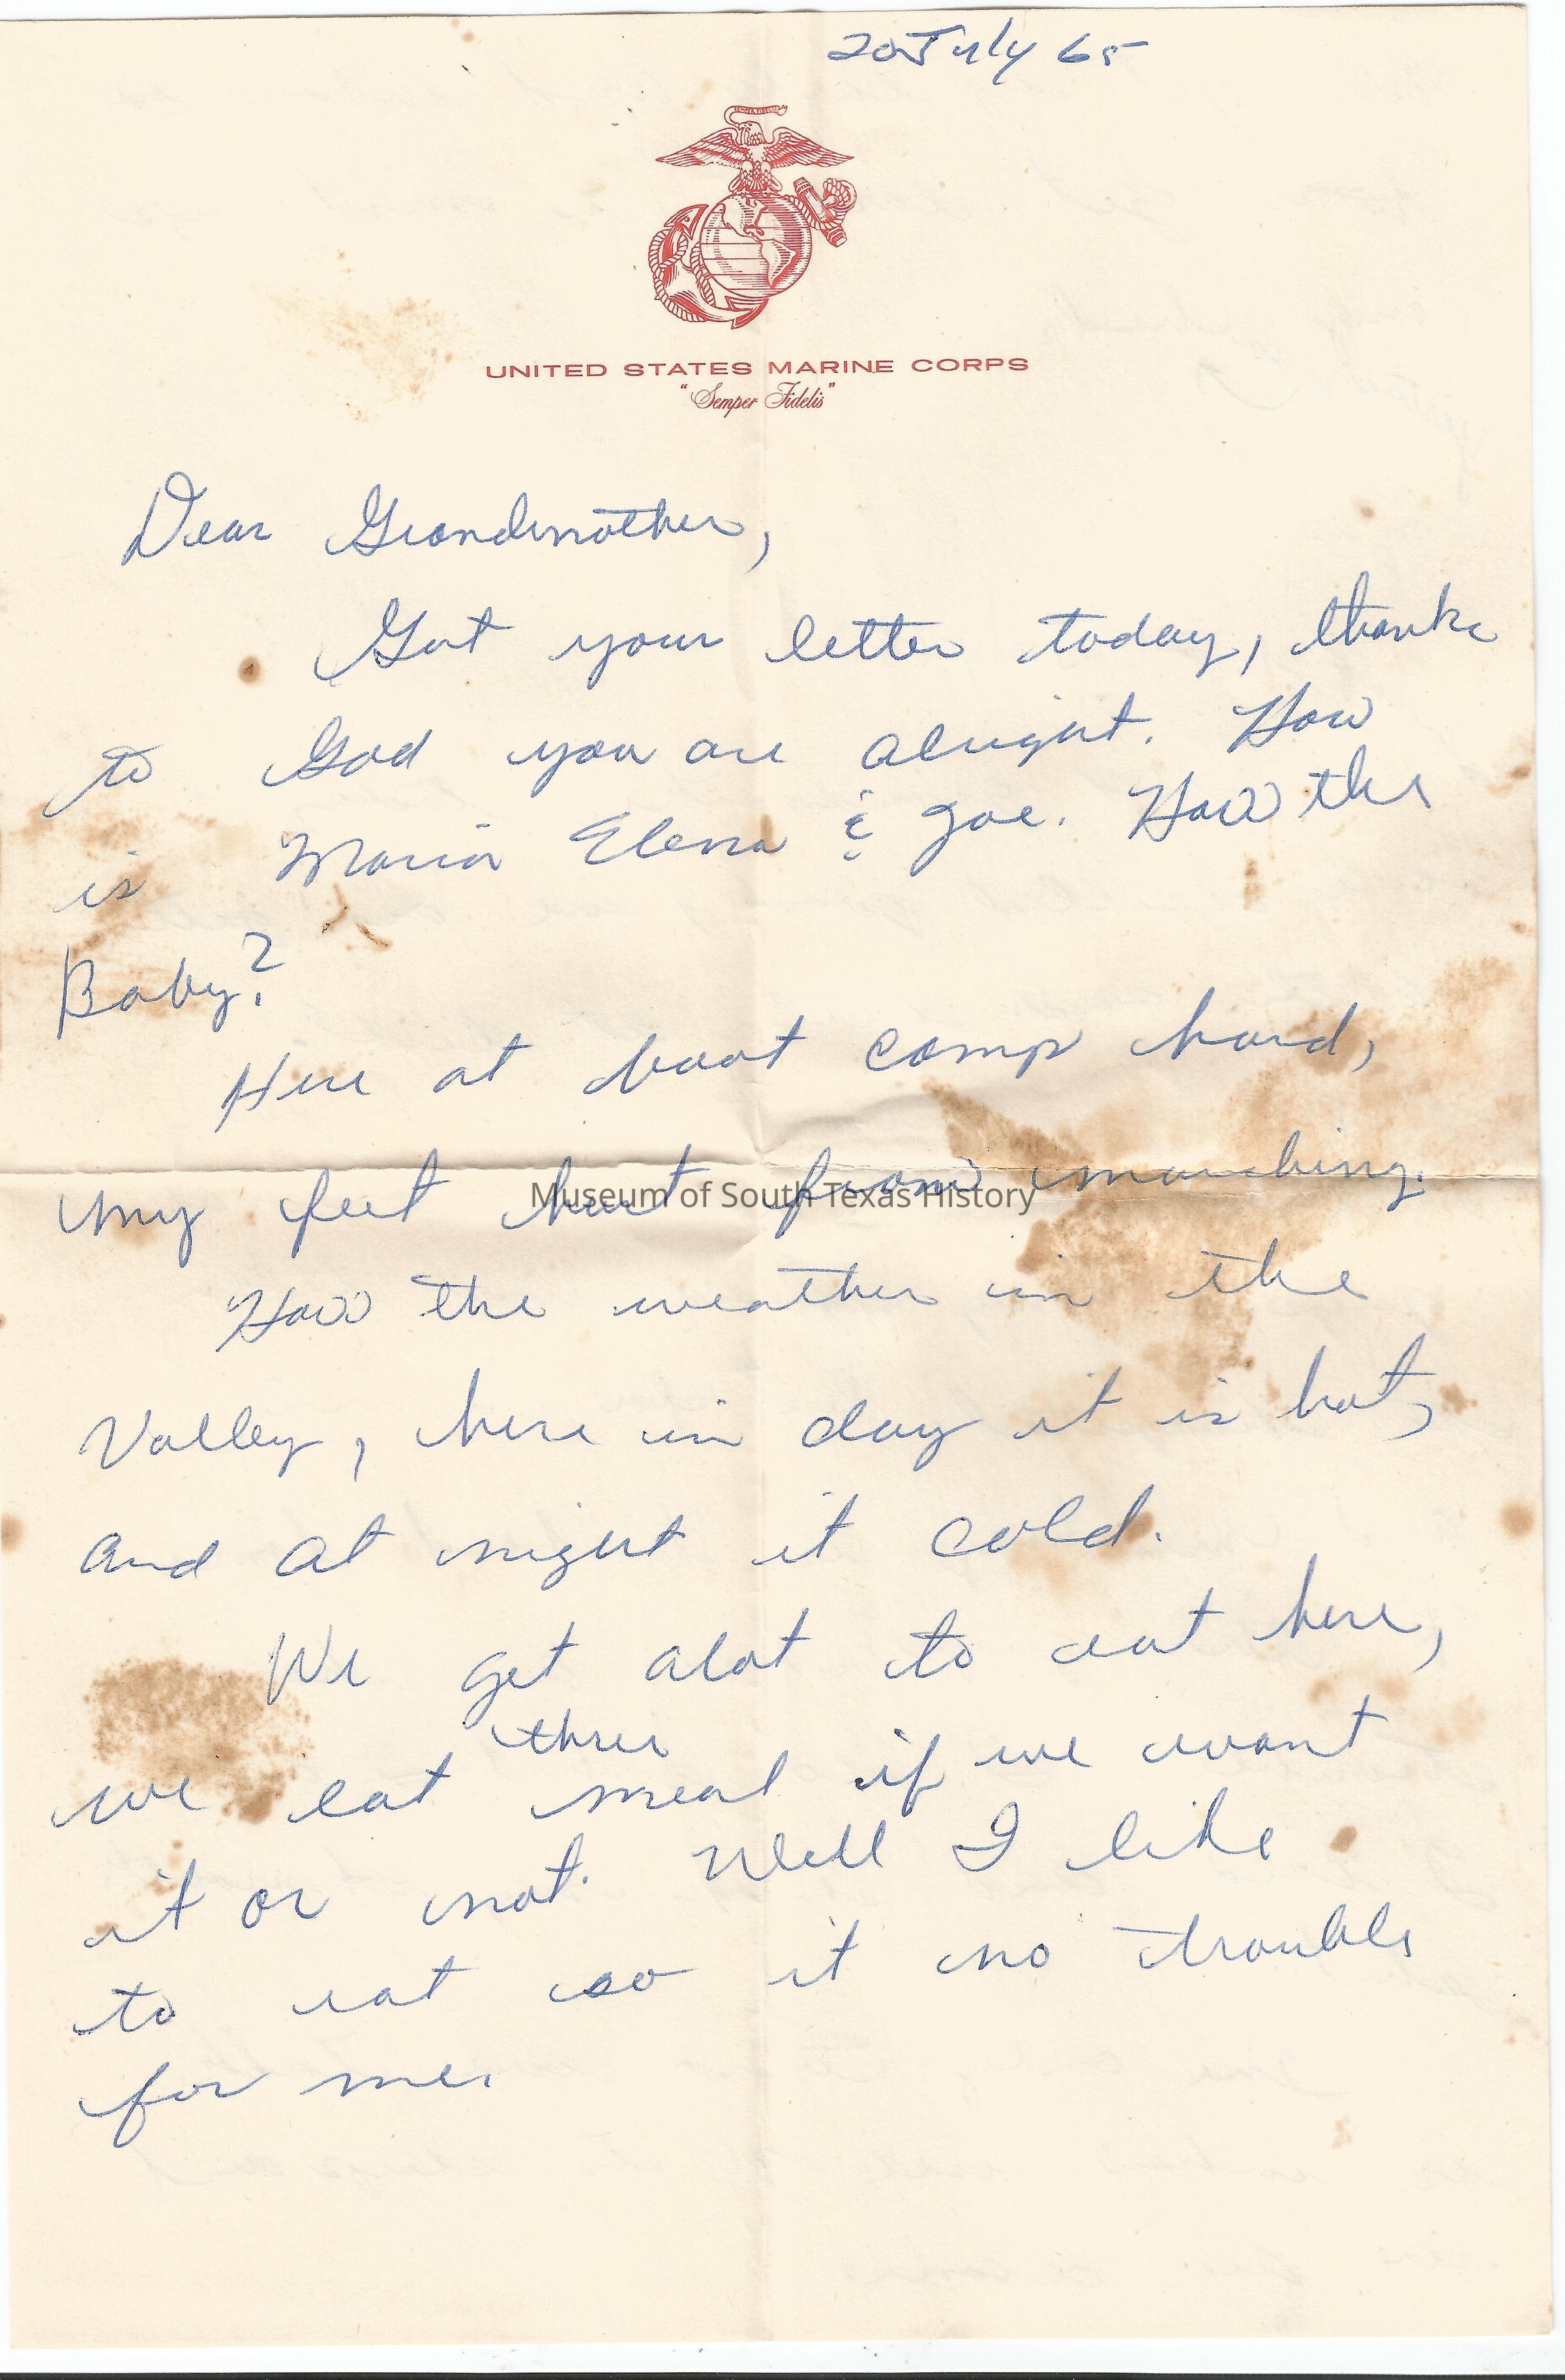 20 July 65
SEMPER FIDELIS
UNITED STATES MARINE CORPS
"Semper Fidelis"
Dear Grandmother,
Got your letter today, thanks
to God you are alright. How
is Maria Elena & Joe. How the
Baby?
Here at boot camp hard,
my feet hurt from marching.
Museum of South Texas History
How the weather in the
Valley, here in day it is hot,
and at night it cold.
We get alot to eat here,
we eat three meal if we want
it or not. Well I like
to eat so it no trouble
for me.